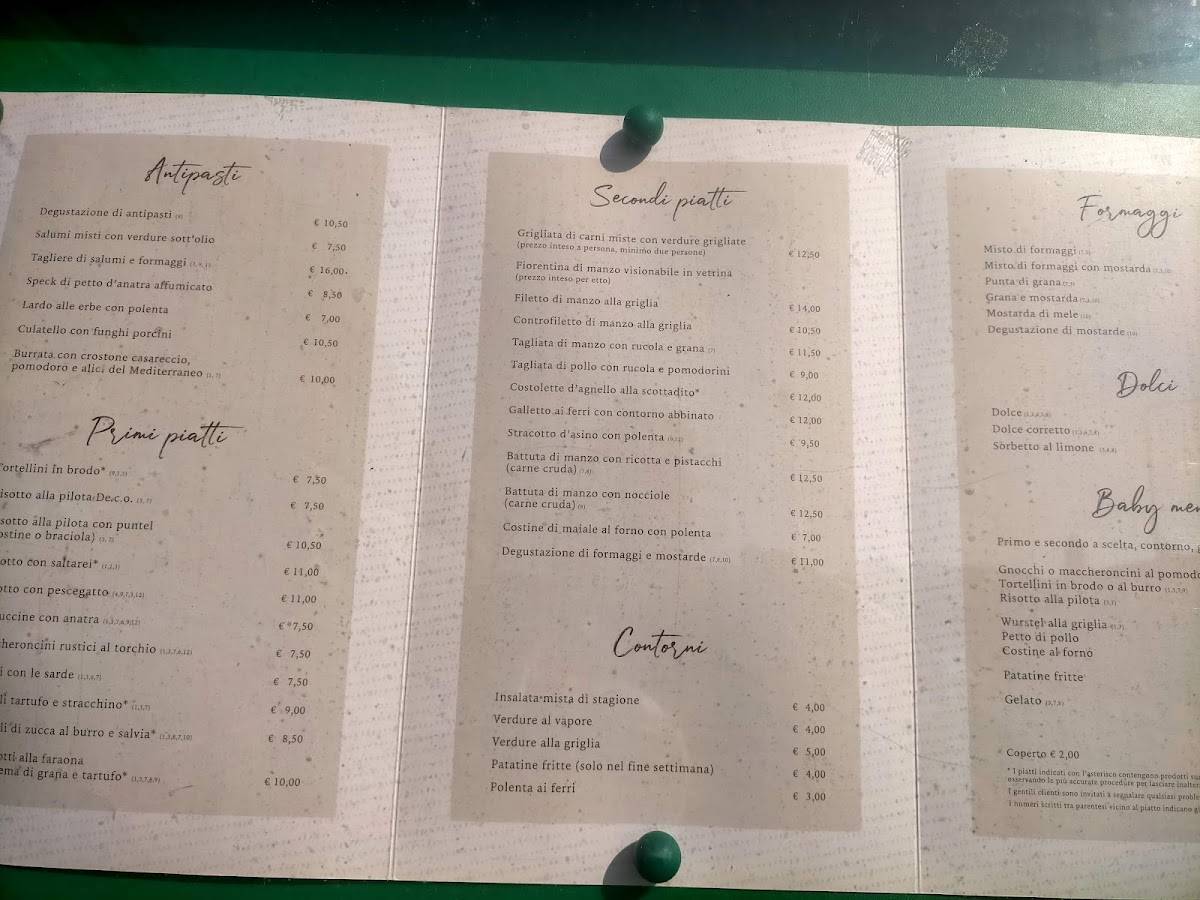 Antipasti
Degustazione di antipasti (9)
€ 10,50
Salumi misti con verdure sott'olio
€ 7,50
Tagliere di salumi e formaggi
€ 16,00
Speck di petto d'anatra affumicato
€ 8,50
Lardo alle erbe con polenta
€ 7,00
Culatello con funghi porcini
€ 10,50
Burrata con crostone casareccio,
pomodoro e alici del Mediterraneo (1, 7)
€ 10,00
Primi piatti
Tortellini in brodo* (9,1,3)
€ 7,50
isotto alla pilota De.c.o. (1, 7)
€ 7,50
sotto alla pilota con puntel
ostine o braciola) (1, 7)
€ 10,50
otto con saltarei* (1,2,3)
€ 11,00
otto con pescegatto (4,9,7,3,12)
€ 11,00
uccine con anatra (1,3,7,6,9,12)
€ 7,50
heroncini rustici al torchio (1,3,7,6,12)
€ 7,50
i con le sarde (1,3,6,7)
€ 7,50
li tartufo e stracchino* (1,3,7)
€ 9,00
li di zucca al burro e salvia* (1,3,8,7,10)
€ 8,50
otti alla faraona
ema di grana e tartufo* (1,3,7,8,9)
€ 10,00
Secondi piatti
Grigliata di carni miste con verdure grigliate
(prezzo inteso a persona, minimo due persone)
€ 12,50
Fiorentina di manzo visionabile in vetrina
(prezzo inteso per etto)
Filetto di manzo alla griglia
€ 14,00
Controfiletto di manzo alla griglia
€ 10,50
Tagliata di manzo con rucola e grana (7)
€ 11,50
Tagliata di pollo con rucola e pomodorini
€ 9,00
Costolette d'agnello alla scottadito*
€ 12,00
Galletto ai ferri con contorno abbinato
€ 12,00
Stracotto d'asino con polenta (9,12)
€ 9,50
Battuta di manzo con ricotta e pistacchi
(carne cruda) (7,8)
€ 12,50
Battuta di manzo con nocciole
(carne cruda) (8)
€ 12,50
Costine di maiale al forno con polenta
€ 7,00
Degustazione di formaggi e mostarde (7,8,10)
€ 11,00
Contorni
Insalata mista di stagione
€ 4,00
Verdure al vapore
€ 4,00
Verdure alla griglia
€ 5,00
Patatine fritte (solo nel fine settimana)
€ 4,00
Polenta ai ferri
€ 3,00
Formaggi
Misto di formaggi
Misto di formaggi con mostarda
Punta di grana
Grana e mostarda
Mostarda di mele (10)
Degustazione di mostarde (10)
Dolci
Dolce
Dolce corretto
Sorbetto al limone
Baby men
Primo e secondo a scelta, contorno, g
Gnocchi o maccheroncini al pomodo
Tortellini in brodo o al burro (1,3,7,9)
Risotto alla pilota
Wurstel alla griglia
Petto di pollo
Costine al forno
Patatine fritte
Gelato (3,7,8)
Coperto € 2,00
* I piatti indicati con l'asterisco contengono prodotti su
osservando le più accurate procedure per lasciare inalter
I gentili clienti sono invitati a segnalare qualsiasi proble
I numeri scritti tra parentesi vicino al piatto indicano gl